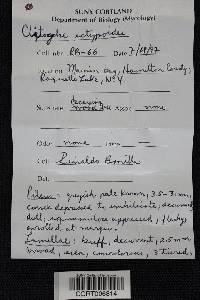 SUNY CORTLAND
Department of Biology (Mycology)
Clitocybe ectypoides
Coll nbr RB-66 Date 7/18/97
Location Marion Bay, Hamilton County,
Raquette Lake, NY
decaying
none
Odor none
Coll Reinaldo Bonilla
Det
Pileus: grayish pale brown, 3.5-3 cm,
convex depressed to umbilicate, decurved
dull, squamulose appressed, flesh
enrolled at margin.
Lamellae: buff, decurrent, 2.5 mm
broad, concolorous, 3 tiered,
CORT006814